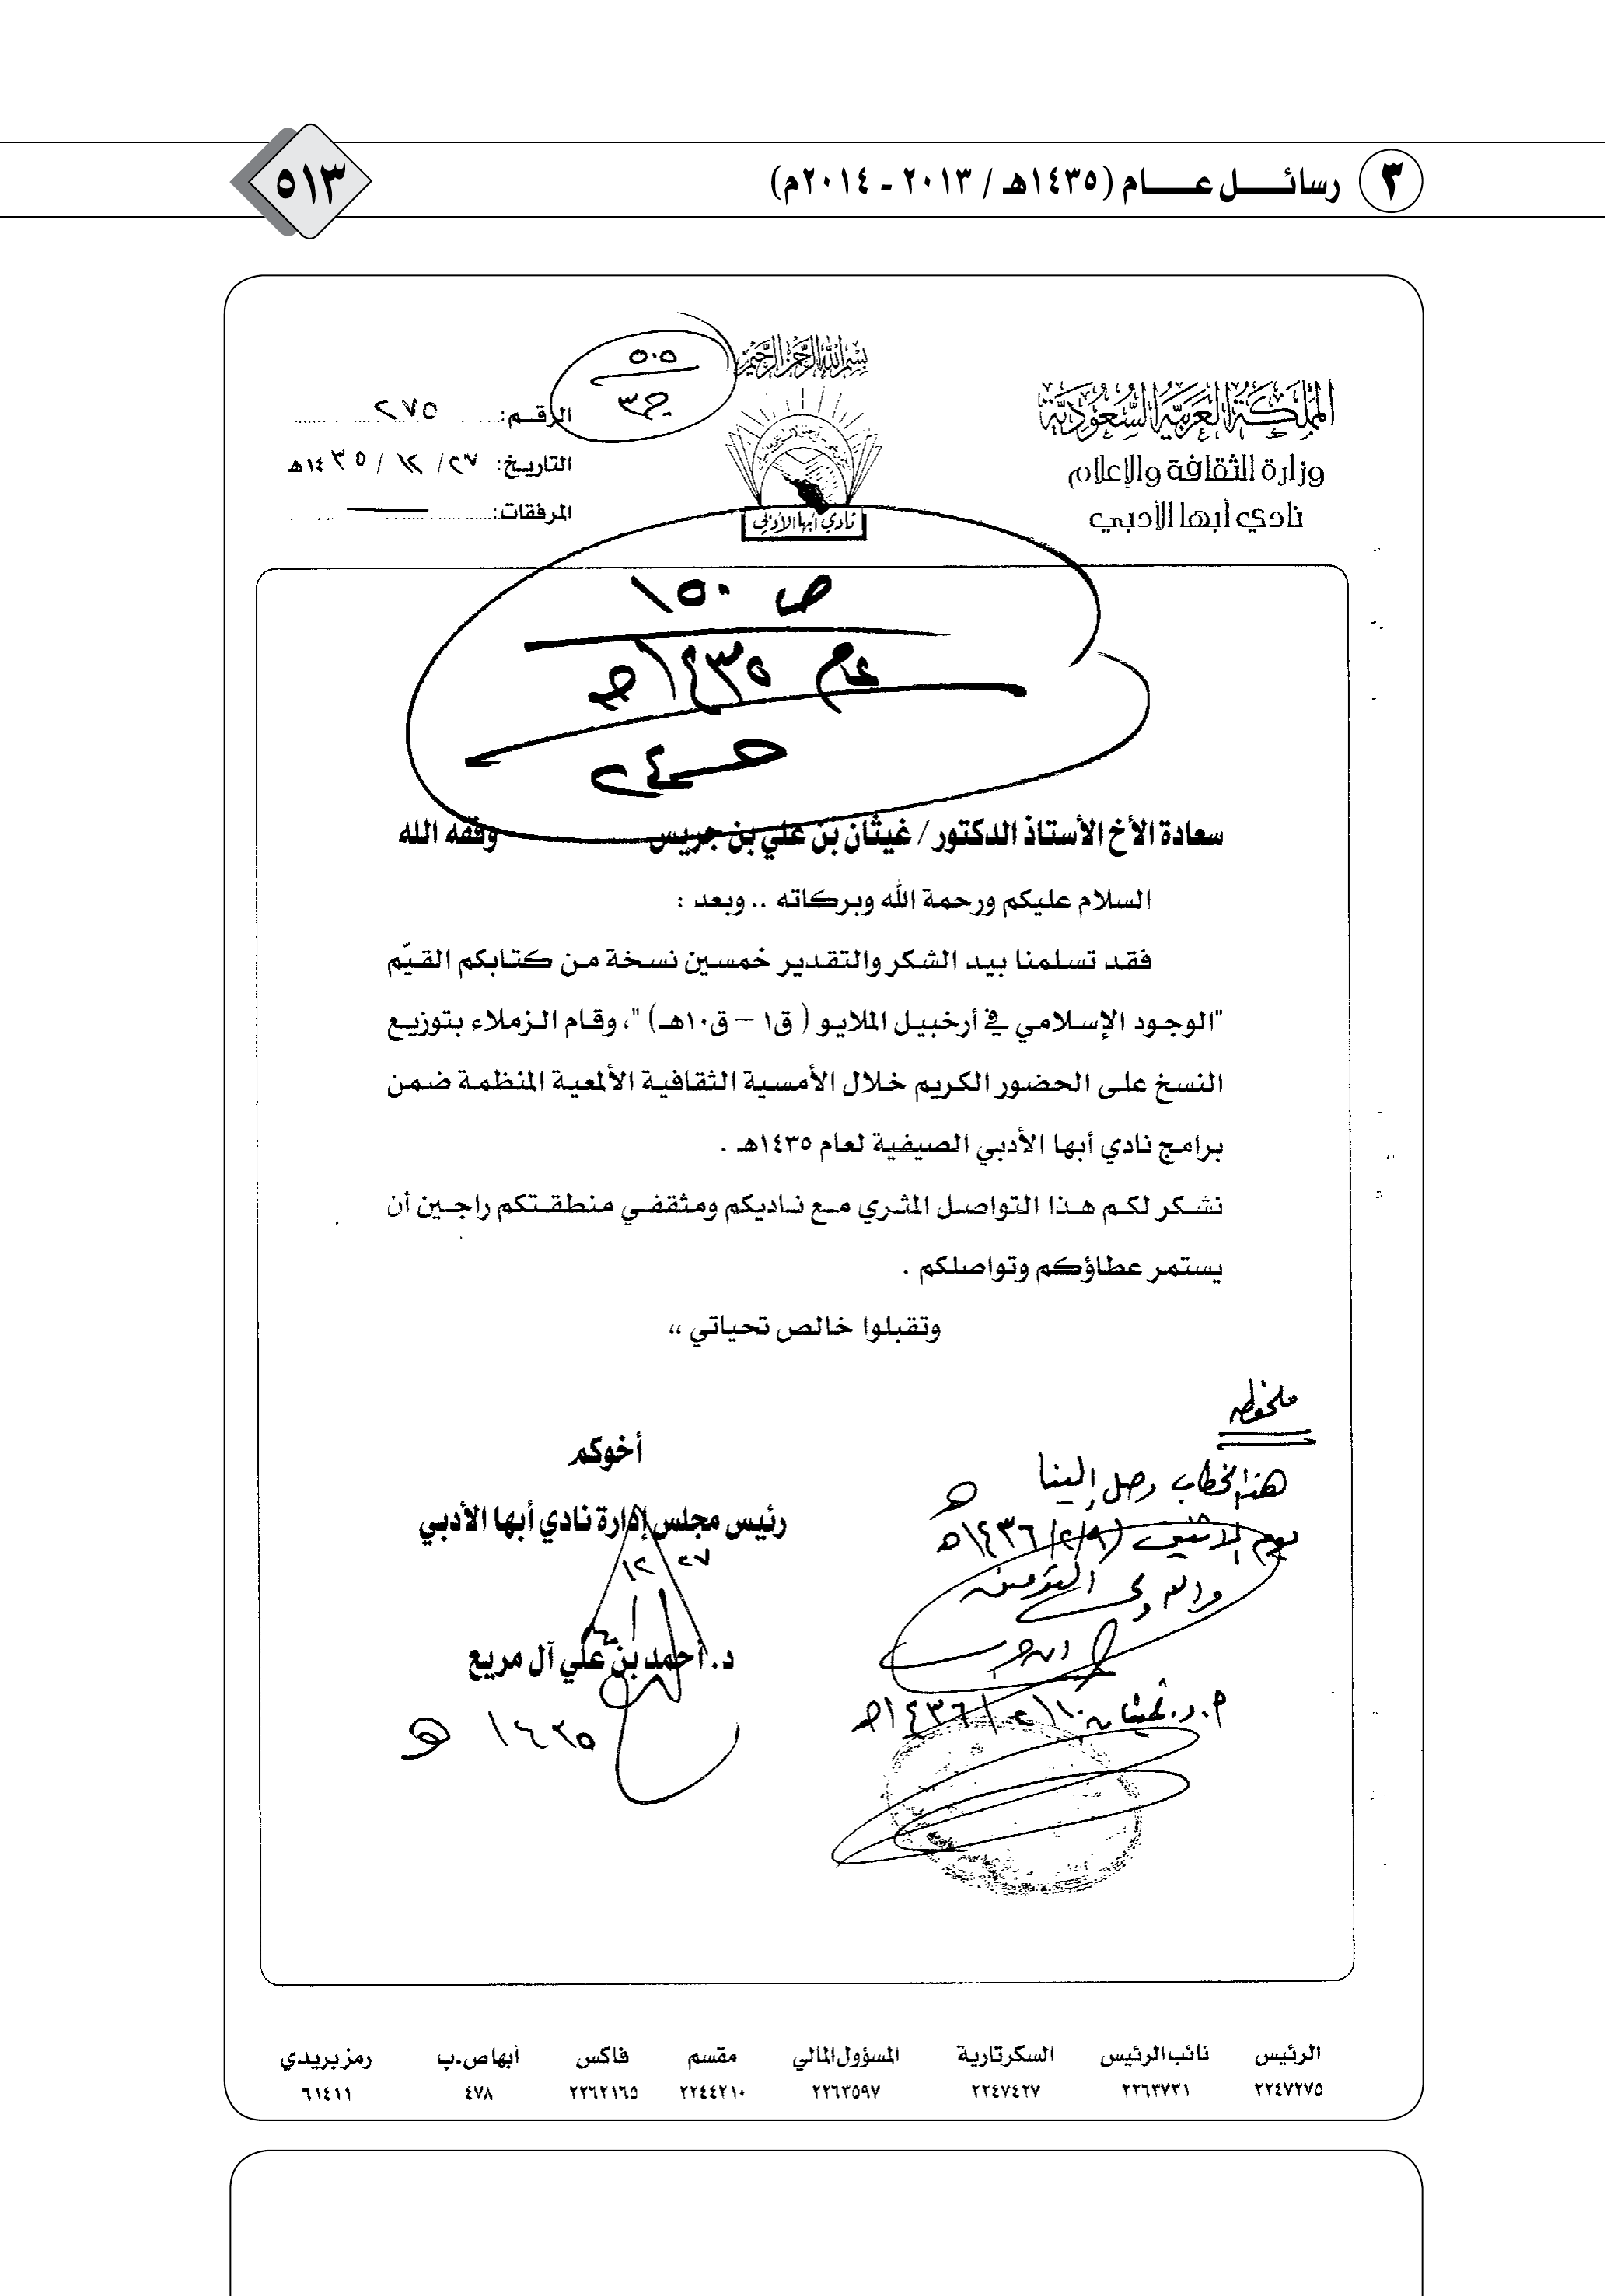 ٣ رسائل عام (١٤٣٥هـ / ٢٠١٣ - ٢٠١٤م)
٥١٣
بسم الله الرحمن الرحيم
المملكة العربية السعودية
وزارة الثقافة والإعلام
نادي أبها الأدبي
نادي أبها الأدبي
٥٠٥
ج٣
الرقم: ٢٧٥
التاريخ: ٢٧/ ١٢/ ١٤٣٥هـ
المرفقات:
ص ١٥٠
عام ١٤٣٥هـ
سعادة الأخ الأستاذ الدكتور / غيثان بن علي بن جريس وفقه الله
السلام عليكم ورحمة الله وبركاته .. وبعد :
فقد تسلمنا بيد الشكر والتقدير خمسين نسخة من كتابكم القيّم
"الوجود الإسلامي في أرخبيل الملايو ( ق١ – ق١٠هـ) "، وقام الزملاء بتوزيع
النسخ على الحضور الكريم خلال الأمسية الثقافية الألمعية المنظمة ضمن
برامج نادي أبها الأدبي الصيفية لعام ١٤٣٥هـ .
نشكر لكم هذا التواصل المثري مع ناديكم ومثقفي منطقتكم راجين أن
يستمر عطاؤكم وتواصلكم .
وتقبلوا خالص تحياتي ،،
أخوكم
رئيس مجلس إدارة نادي أبها الأدبي
٢٧ ١٢
د. أحمد بن علي آل مريع
١٤٣٥ هـ
ملحوظة
هذا الخطاب وصل إلينا
يوم الاثنين (٢/٩/ ١٤٣٦هـ
والله ولي التوفيق
ابن جريس
أ.د. غيثان ١٠/٢/١٤٣٦هـ
الرئيس نائب الرئيس السكرتارية المسؤول المالي مقسم فاكس أبها ص.ب رمز بريدي
٢٢٤٧٢٧٥ ٢٢٦٣٧٣١ ٢٢٤٧٤٢٧ ٢٢٦٣٥٩٧ ٢٢٤٤٢١٠ ٢٢٦٢١٦٥ ٤٧٨ ٦١٤١١